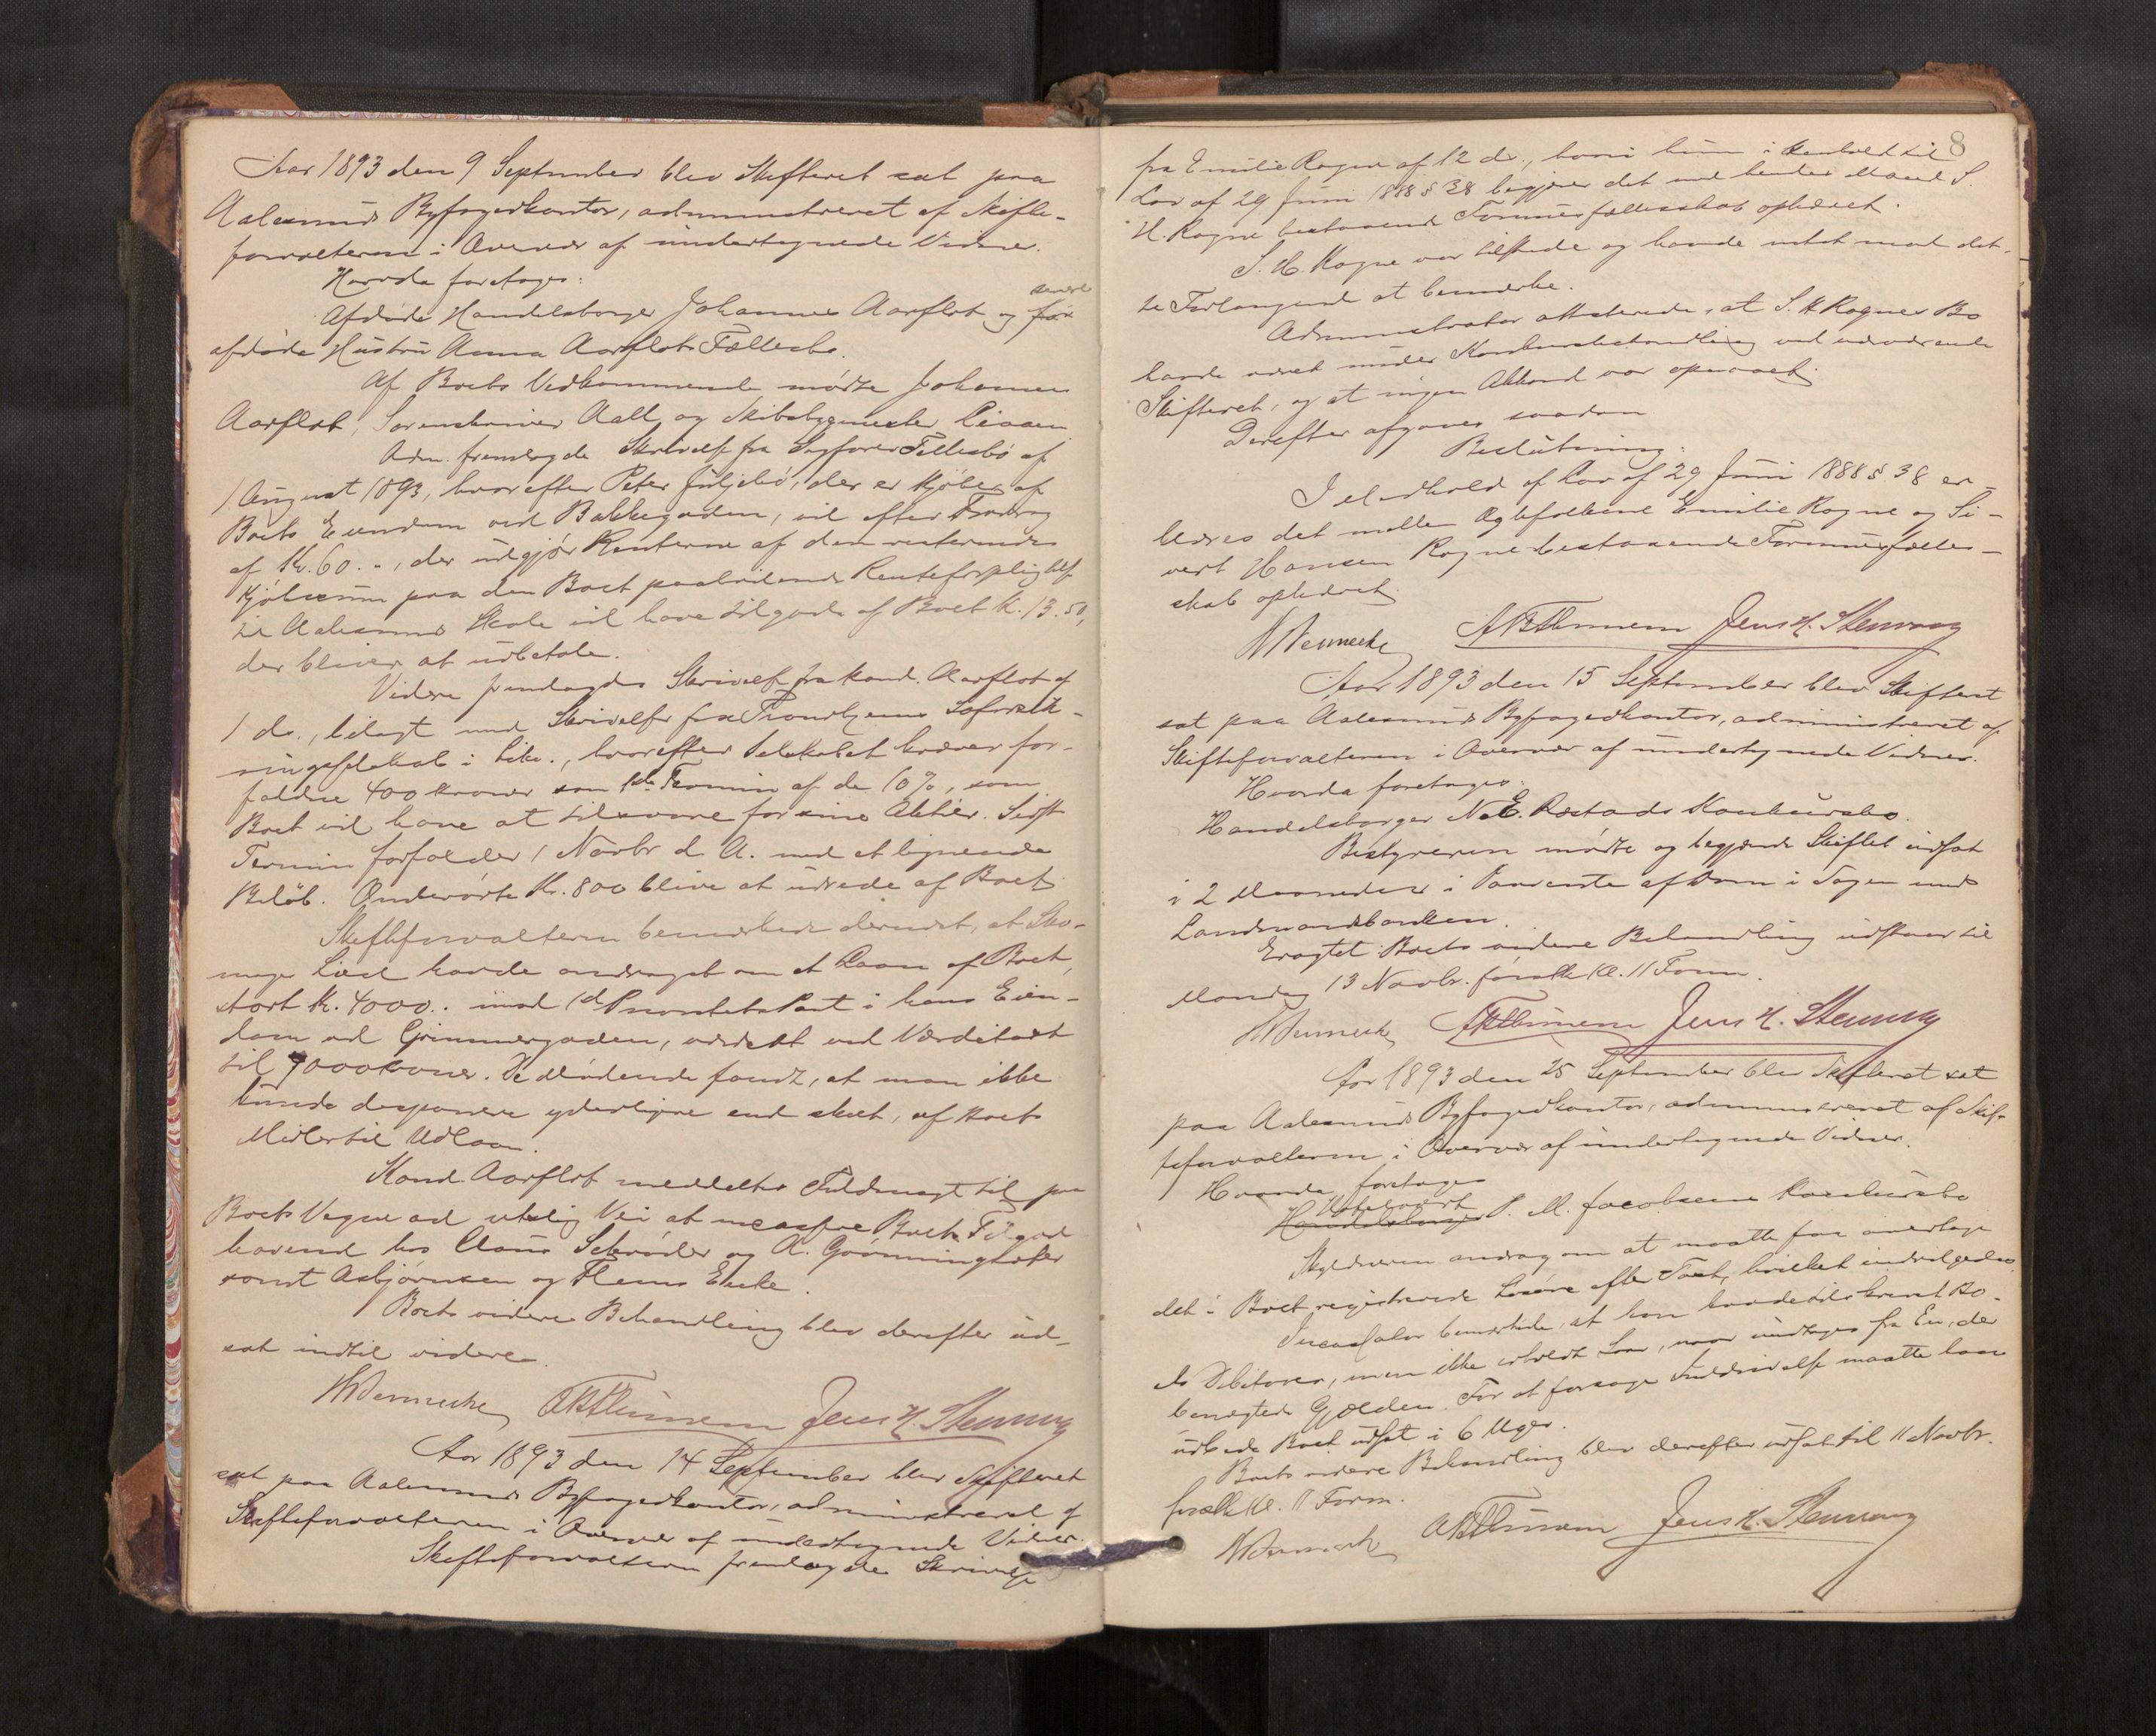 Aar 1893 den 9 September blev Skifteret sat paa
Aalesunds Byfogedkontor, administreret af Skifte-
forvalteren i Overvær af undertegnede Vidner.
Hvorda foretoges:
Afdøde Handelsborger Johannes Aarflot og før
afdøde Hustru Anna Aarflots Fællesbo.
Af Boets Vedkommende mødte Johannes
Aarflot, Sorenskriver Aall og Skibsbygmester Liaaen
Adm. fremlagde Skrivelse fra Sagfører Fillesbø af
1 August 1893, hvorefter Peter Juljebø, der er Kjøber af
Boets Eiendom ved Bakkegaden, vil efter Fradrag
af Kr. 60.-, der udgjør Renterne af den resterende
Kjøbesum paa den Boet paahvilende Renteforpligtelse
til Aalesunds Skole vil have tilgode af Boet Kr. 13.50,
der bliver at udbetale.
Videre fremlagdes Skrivelse fra Kand. Aarflot af
1 ds., bilagt med Skrivelse fra Trondhjems Søforsik-
ringsselskab i Likv., hvorefter Selskabet kræver for-
faldne 400 kroner som 1ste Termin af de 10%, som
Boet vil have at tilsvare for sine Aktier. Sidste
Termin forfalder 1 Novbr d. A. med et lignende
Beløb. Omhandlede Kr. 800 blive at udrede af Boet.
Skifteforvalteren bemærkede dernæst, at Sko-
mager Lied havde andraget om et Laan af Boet,
stort Kr. 4000.. imod 1ste Prioritets Pant i hans Eien-
dom ved Grimmergaden, værdsat ved Værditaxt
til 7000 kroner. De Mødende fandt, at man ikke
kunde disponere yderligere end skeet, af Boets
Midler til Udlaan.
Kand. Aarflot meddeltes Fuldmagt til paa
Boets Vegne ad retslig Vei at incassere Boets Tilgode-
havende hos Claus Schrøder og A. Grønningsæter
samt Asbjørnsen og Flems Enke.
Boets videre Behandling blev derefter ud-
sat indtil videre.
Jens H. Stenvaag
Aar 1893 den 14 September blev Skifteret
sat paa Aalesunds Byfogedkontor, administreret af
Skifteforvalteren i Overvær af undertegnede Vidner.
Skifteforvalteren fremlagde Skrivelse
8
fra Emilie Rogne af 12 ds., hvori hun i Henhold til
Lov af 29 Juni 1888 § 38 begjærer det med hendes Mand S.
H. Rogne bestaaende Formuesfællesskab ophævet.
S. H. Rogne var tilstede og havde intet mod det-
te Forlangende at bemærke.
Administrator attesterede, at S. H. Rognes Bo
havde været under Konkursbehandling ved nærværende
Skifteret, og at ingen Akkord var opnaaet.
Derefter afgaves saadan
Beslutning:
I Medhold af Lov af 29 Juni 1888 § 38 er-
klæres det mellem Ægtefolkene Emilie Rogne og Si-
vert Hansen Rogne bestaaende Formuesfælles-
skab ophævet.
Jens H. Stenvaag
Aar 1893 den 15 September blev Skifteret
sat paa Aalesunds Byfogedkontor, administreret af
Skifteforvalteren i Overvær af undertegnede Vidner.
Hvorda foretoges:
Handelsborger N. E. Ræstads Konkursbo.
Bestyreren mødte og begjærede Skiftet udsat
i 2 Maaneder i Paavente af Dom i Sagen mod
Landmandsbanken.
Eragtet: Boets videre Behandling udstaar til
Mandag 13 Novbr. førstk. Kl. 11 Form.
Jens H. Stenvaag
Aar 1893 den 25 September blev Skifteret sat
paa Aalesunds Byfogedkontor, administreret af Skif-
teforvalteren i Overvær af undertegnede Vidner.
Hvorda foretoges
Handelsborger P. M. Jacobsens Konkursbo
Skyldneren androg om at maatte faa overtage
det i Boet registrerede Løsøre efter Taxt, hvilket indvilgedes.
Incassator bemærkede, at han havde tilskrevet Bo-
ets Debitorer, men ikke erholdt Svar, naar undtages fra En, der
benegtede Gjælden. For at forsøge Inddrivelse maatte han
udbede Boet udsat i 6 Uger.
Boets videre Behandling blev derefter udsat til 11 Novbr.
førstk. Kl. 11 Form.
Jens H. Stenvaag